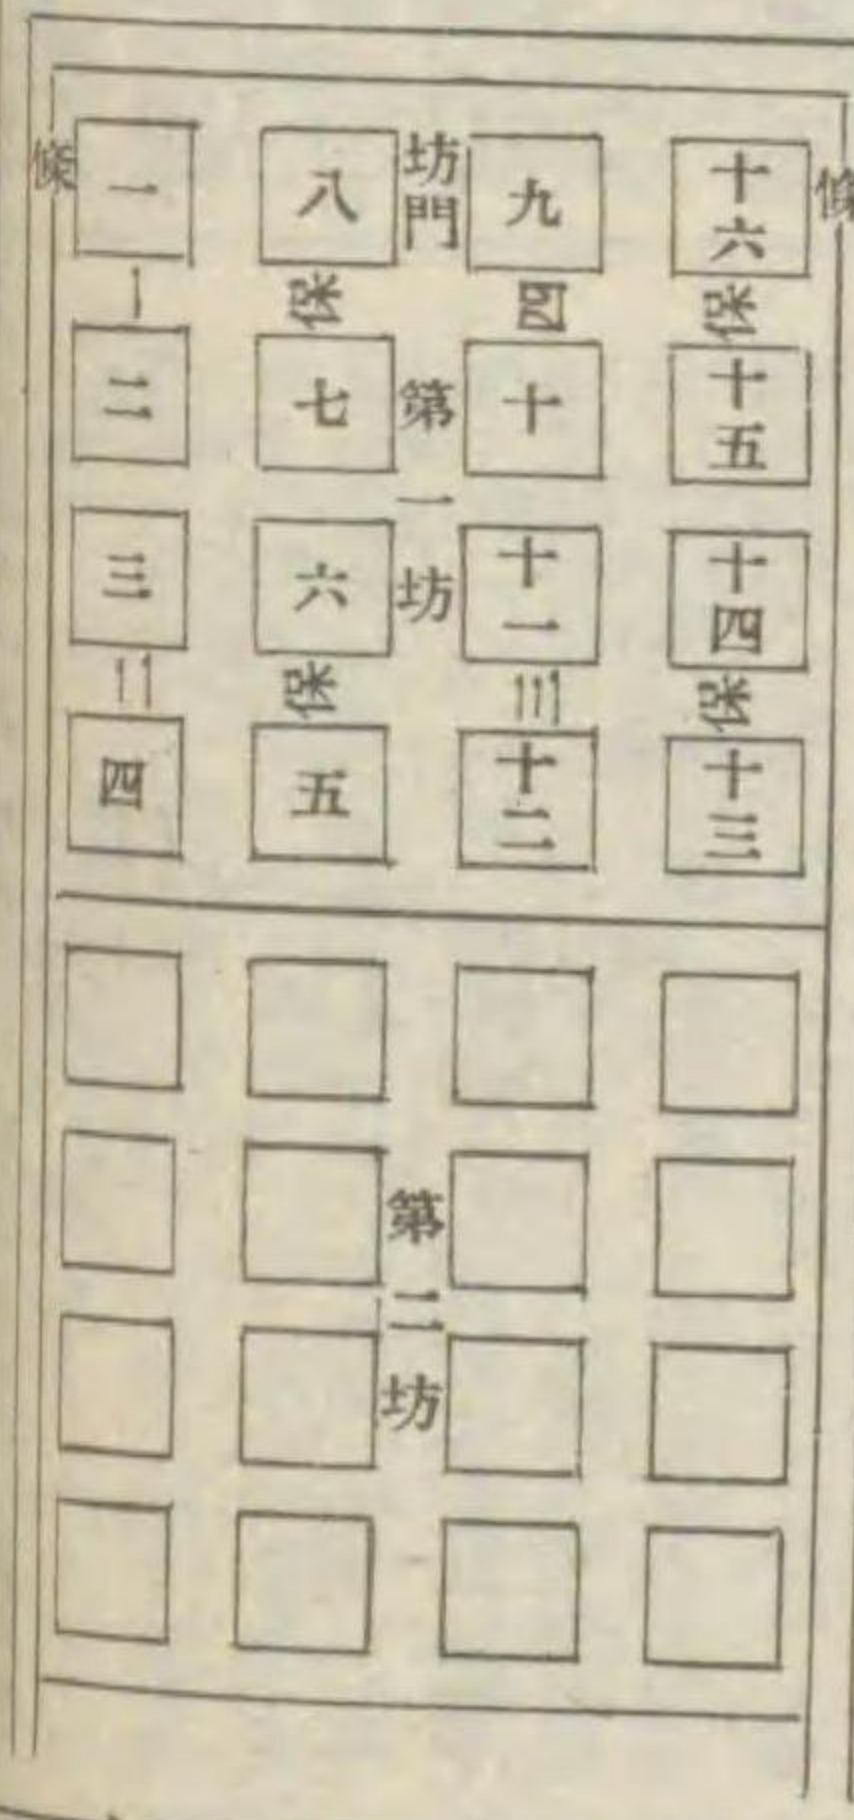 條
一
八
坊門
九
十六
條
一保
四保
二
七
第一坊
十
十五
三
六
十一
十四
二保
三保
四
五
十二
十三
第二坊